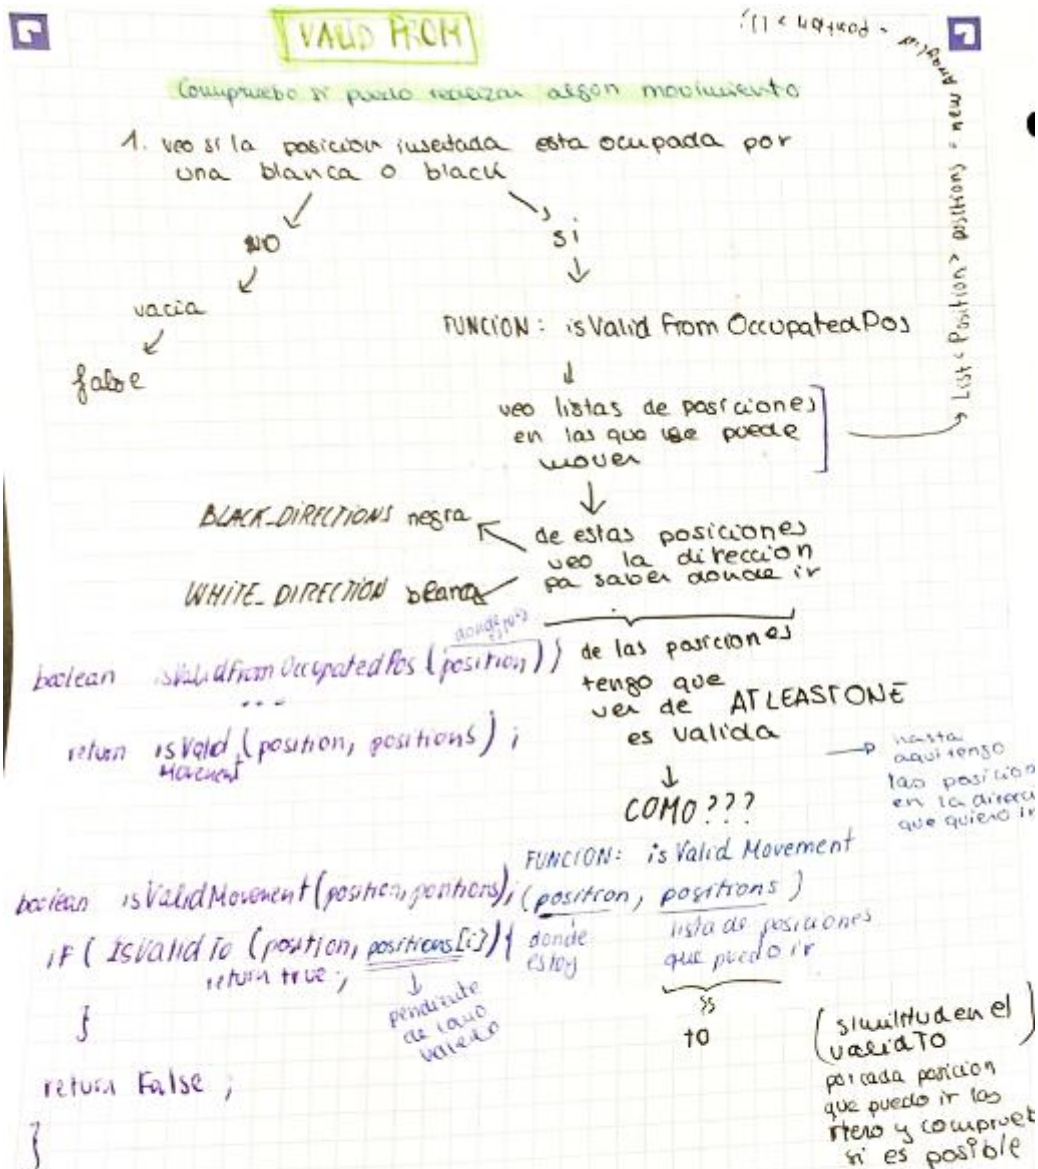 VALID FROM
Compruebo si puedo realizar algon movimiento
1. veo si la posicion insertada esta ocupada por
una blanca o black
NO
si
vacia
false
FUNCION: isValid From OccupatedPos
veo listas de posiciones
en las que se puede
mover
List<Position> positions = new Arraylist<position>();
de estas posiciones
veo la direccion
pa saber donde ir
BLACK_DIRECTIONS negra
WHITE_DIRECTION blanca
de las posiciones
tengo que
ver de ATLEASTONE
es valida
donde estoy
boolean isValidFromOccupatedPos (position) }
...
return isValid (position, positions) ;
Movement
hasta
aqui tengo
las posicion
en la direcci
que quiero ir
COMO???
FUNCION: is Valid Movement
(position, positions)
donde
estoy
lista de posiciones
que puedo ir
to
boolean isValidMovement (position, positions);
if ( IsValidTo (position, positions[i]) {
return true ;
pendiente
de como
}
return False ;
}
(similitud en el
validTo)
por cada posicion
que puedo ir las
itero y comprueb
si es posible